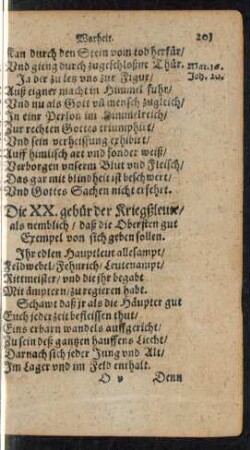 Warheit. 203
Kan durch den Stein vom tod herfür/
Vnd gieng durch zugeschloßne Thür. Mar. 16.
Ja der zu letz vns zur Figur/ Joh. 20.
Auß eigner macht in Himmel fuhr/
Vnd nu als Gott vñ mensch zugleich/
In einr Person im Himmelreich/
Zur rechten Gottes triumphirt/
Vnd sein verheissung exhibirt/
Auff himlisch art vnd sonder weiß/
Verborgen vnserm Blut vnd Fleisch/
Das gar mit blindheit ist beschwert/
Vnd Gottes Sachen nicht ersehrt.
Die XX. gebür der Kriegßleut/
als nemblich/ daß die Obersten gut
Exempel von sich geben sollen.
Ihr edlen Hauptleut allesampt/
Feldwebel/ Fehnrich/ Leutenampt/
Rittmeister/ vnd die jhr begabt
Mit ämptern/ zu regieren habt.
Schawt daß jr als die Häupter gut
Euch jederzeit befleissen thut/
Eins erbarn wandels auffgericht/
Zu sein deß gantzen hauffens Liecht/
Darnach sich jeder Jung vnd Alt/
Im Lager vnd im Feld enthalt.
O v Denn